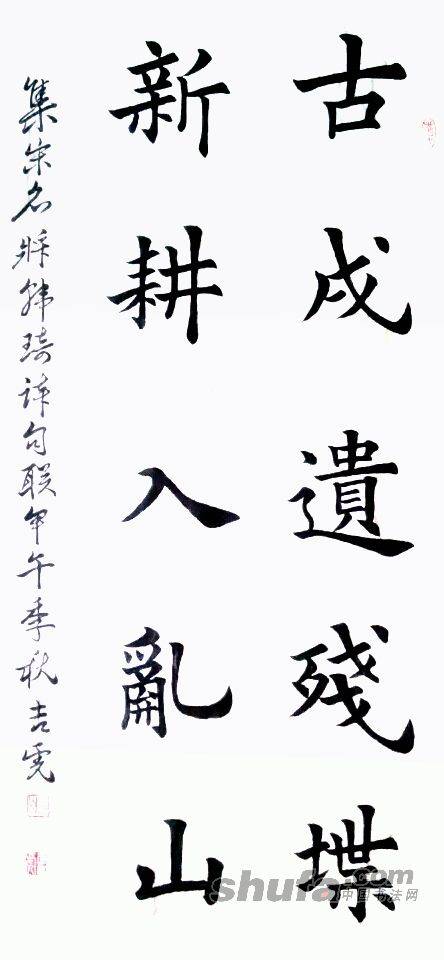 古戍遺殘堞
新耕入亂山
集宋名将韩琦诗句联甲午季秋吉
shufa.com
中国书法网